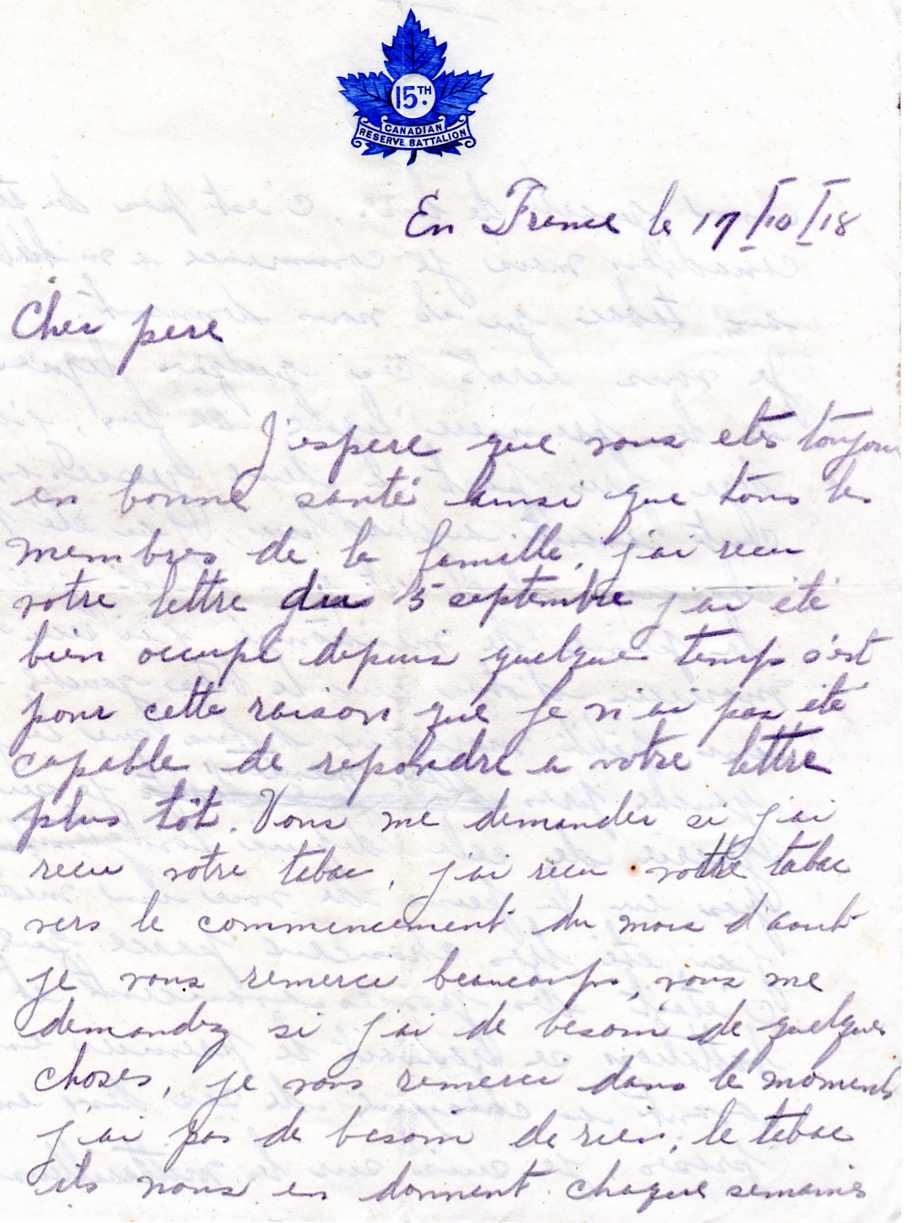 15TH
CANADIAN
RESERVE BATTALION
En France le 17/10/18
Cher pere
J'espere que vous etes toujour
en bonne santé ainsi que tous les
membres de la famille, j'ai recu
votre lettre du 5 septembre j'ai été
bien occupé depuis quelque temps c'est
pour cette raison que je n'ai pas été
capable de repondre a votre lettre
plus tôt. Vous me demander si j'ai
recu votre tabac, j'ai recu votre tabac
vers le commencement du mois d'aout
je vous remerci beaucoups, vous me
demandez si j'ai de besoin de quelques
choses, je vous remerci dans le moment
j'ai pas de besoin de rien, le tabac
ils nous en donnent chaque semaines